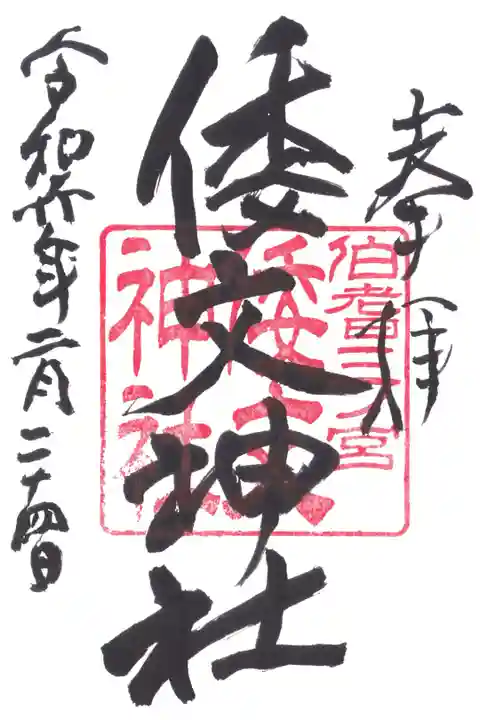 奉拝
伯耆三ノ宮
倭文
神社
倭文神社
令和六年二月二十四日